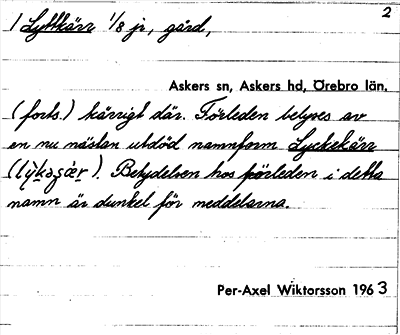 2
1 Lyttkärr 1/8 jr, gård,
Askers sn, Askers hd, Örebro län.
(forts.) kärrigt där. Förleden belyses av
en nu nästan utdöd namnform Lyckekärr
Betydelsen hos förleden i detta
namn är dunkel för meddelarna.
Per-Axel Wiktorsson 1963